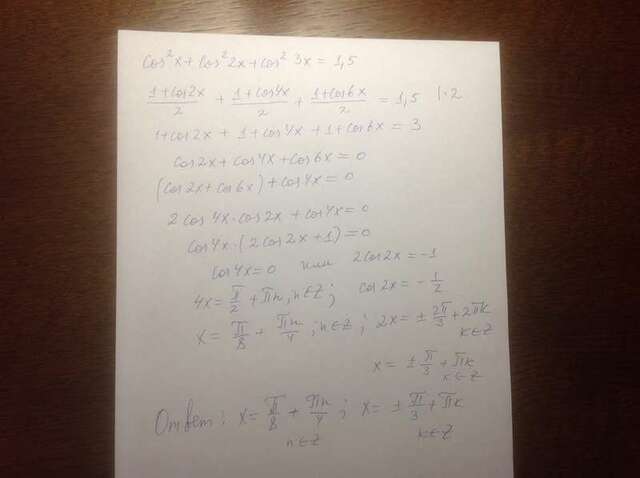 cos²x + cos²2x + cos² 3x = 1,5
(1+cos2x)/2 + (1+cos4x)/2 + (1+cos6x)/2 = 1,5 |·2
1+cos2x + 1+cos4x + 1+cos6x = 3
cos2x + cos4x + cos6x = 0
(cos2x + cos6x) + cos4x = 0
2cos4x·cos2x + cos4x = 0
cos4x·(2cos2x+1) = 0
cos4x = 0 или 2cos2x = -1
4x = π/2 + πn, n∈Z; cos2x = -1/2
x = π/8 + πn/4; n∈Z; 2x = ± 2π/3 + 2πk
k∈Z
x = ± π/3 + πk
k∈Z
Ответ: x = π/8 + πn/4; x = ± π/3 + πk
n∈Z k∈Z